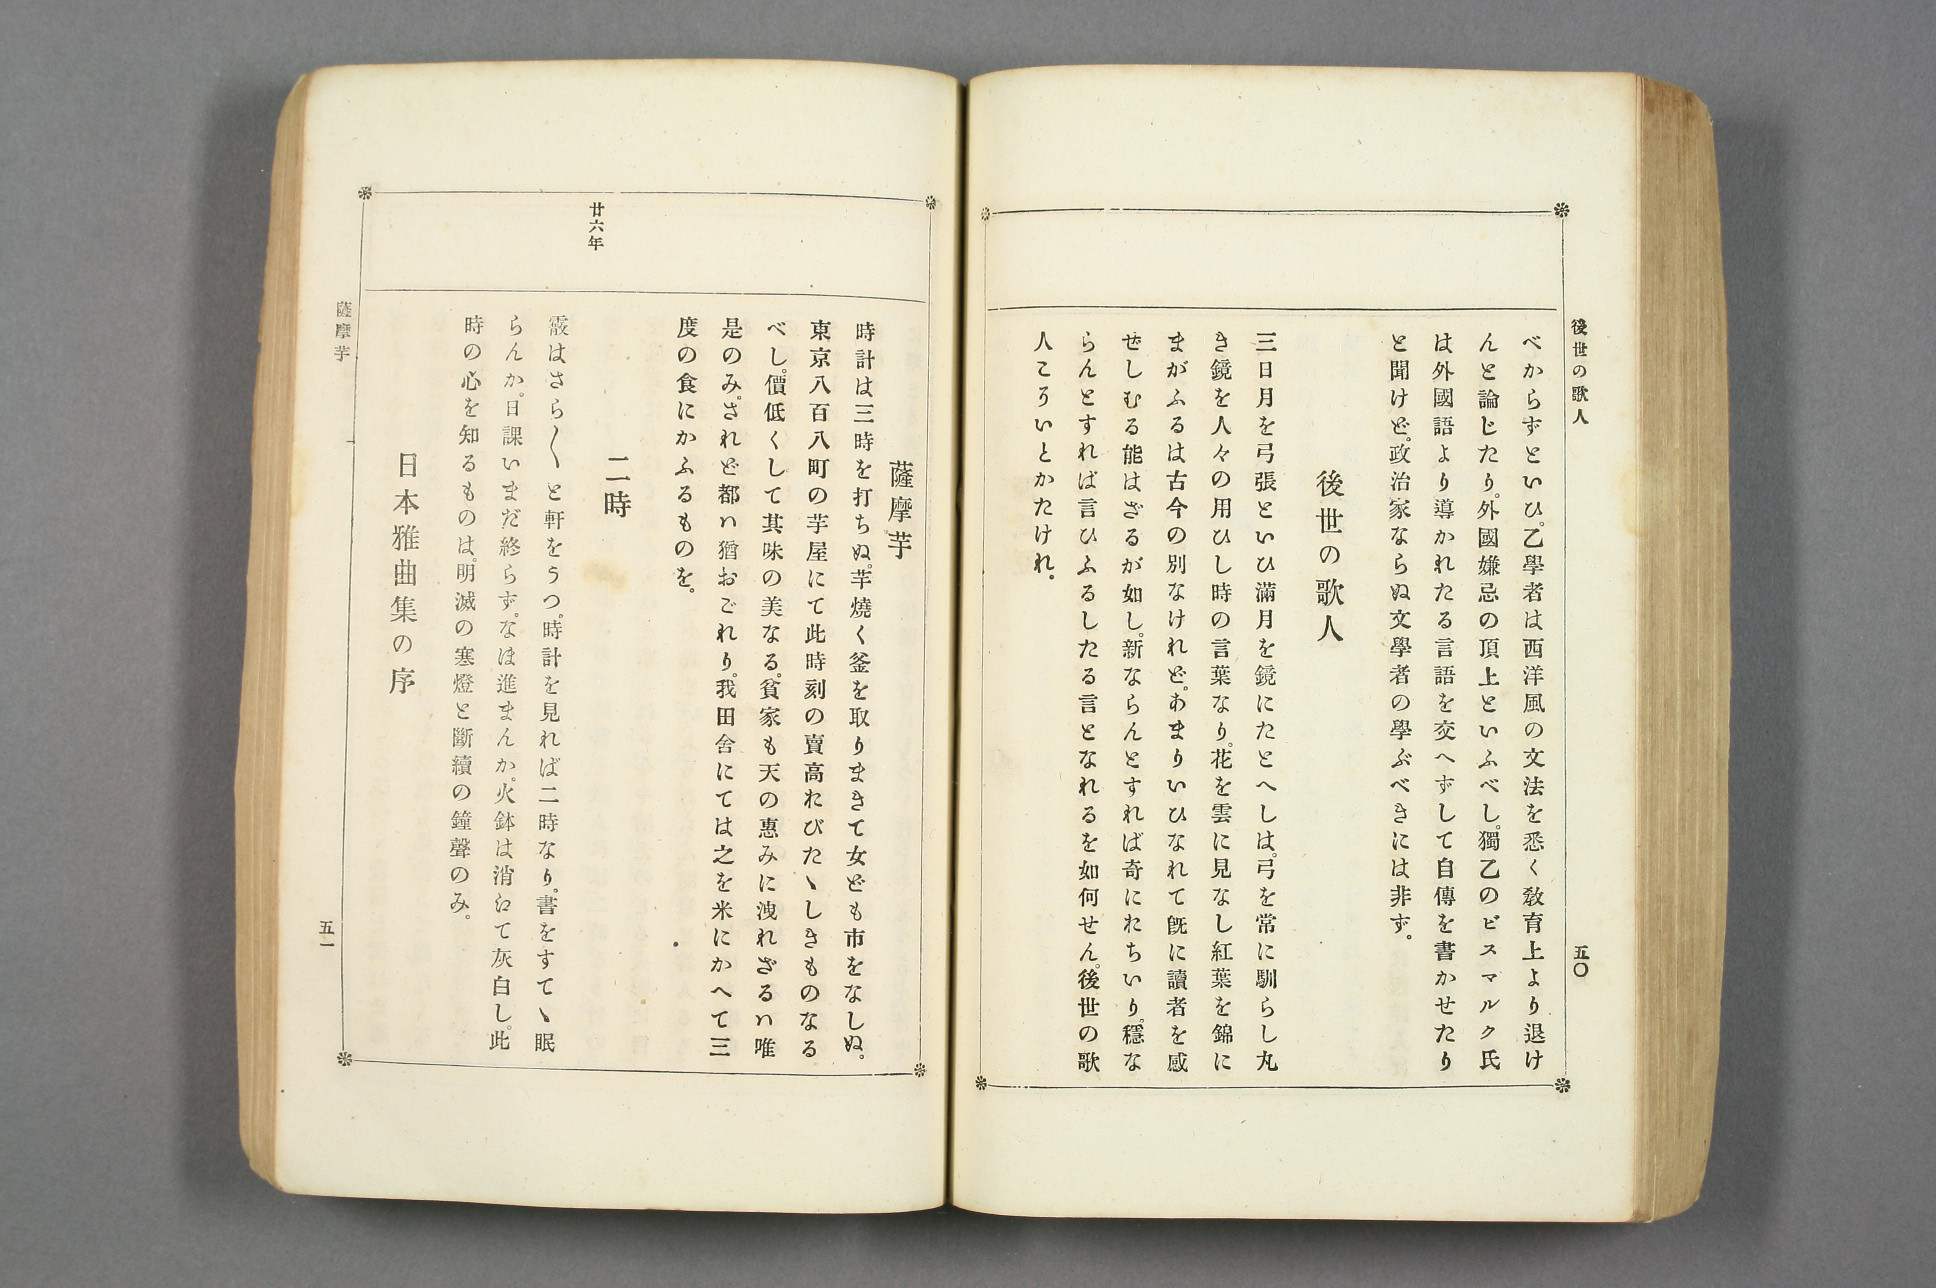 後世の歌人
五〇
べからずといひ。乙學者は西洋風の文法を悉く敎育上より退け
んと論じたり。外國嫌忌の頂上といふべし。獨乙のビスマルク氏
は外國語より導かれたる言語を交へずして自傳を書かせたり
と聞けど。政治家ならぬ文學者の學ぶべきには非ず。
後世の歌人
三日月を弓張といひ滿月を鏡にたとへしは。弓を常に馴らし丸
き鏡を人々の用ひし時の言葉なり。花を雲に見なし紅葉を錦に
まがふるは古今の別なけれど。あまりいひなれて旣に讀者を感
ぜしむる能はざるが如し。新ならんとすれば奇におちいり。穩な
らんとすれば言ひふるしたる言となれるを如何せん。後世の歌
人こそいとかたけれ。
薩摩芋
時計は三時を打ちぬ。芋燒く釜を取りまきて女ども市をなしぬ。
東京八百八町の芋屋にて此時刻の賣高おびたゝしきものなる
べし。價低くして其味の美なる。貧家も天の惠みに洩れざるハ唯
是のみ。されど都ハ猶おごれり。我田舍にては之を米にかへて三
度の食にかふるものを。
廿六年
二時
霰はさら〱と軒をうつ。時計を見れば二時なり。書をすてゝ眠
らんか。日課いまだ終らず。なほ進まんか。火鉢は消えて灰白し。此
時の心を知るものは。明滅の寒燈と斷續の鐘聲のみ。
日本雅曲集の序
薩摩芋
五一